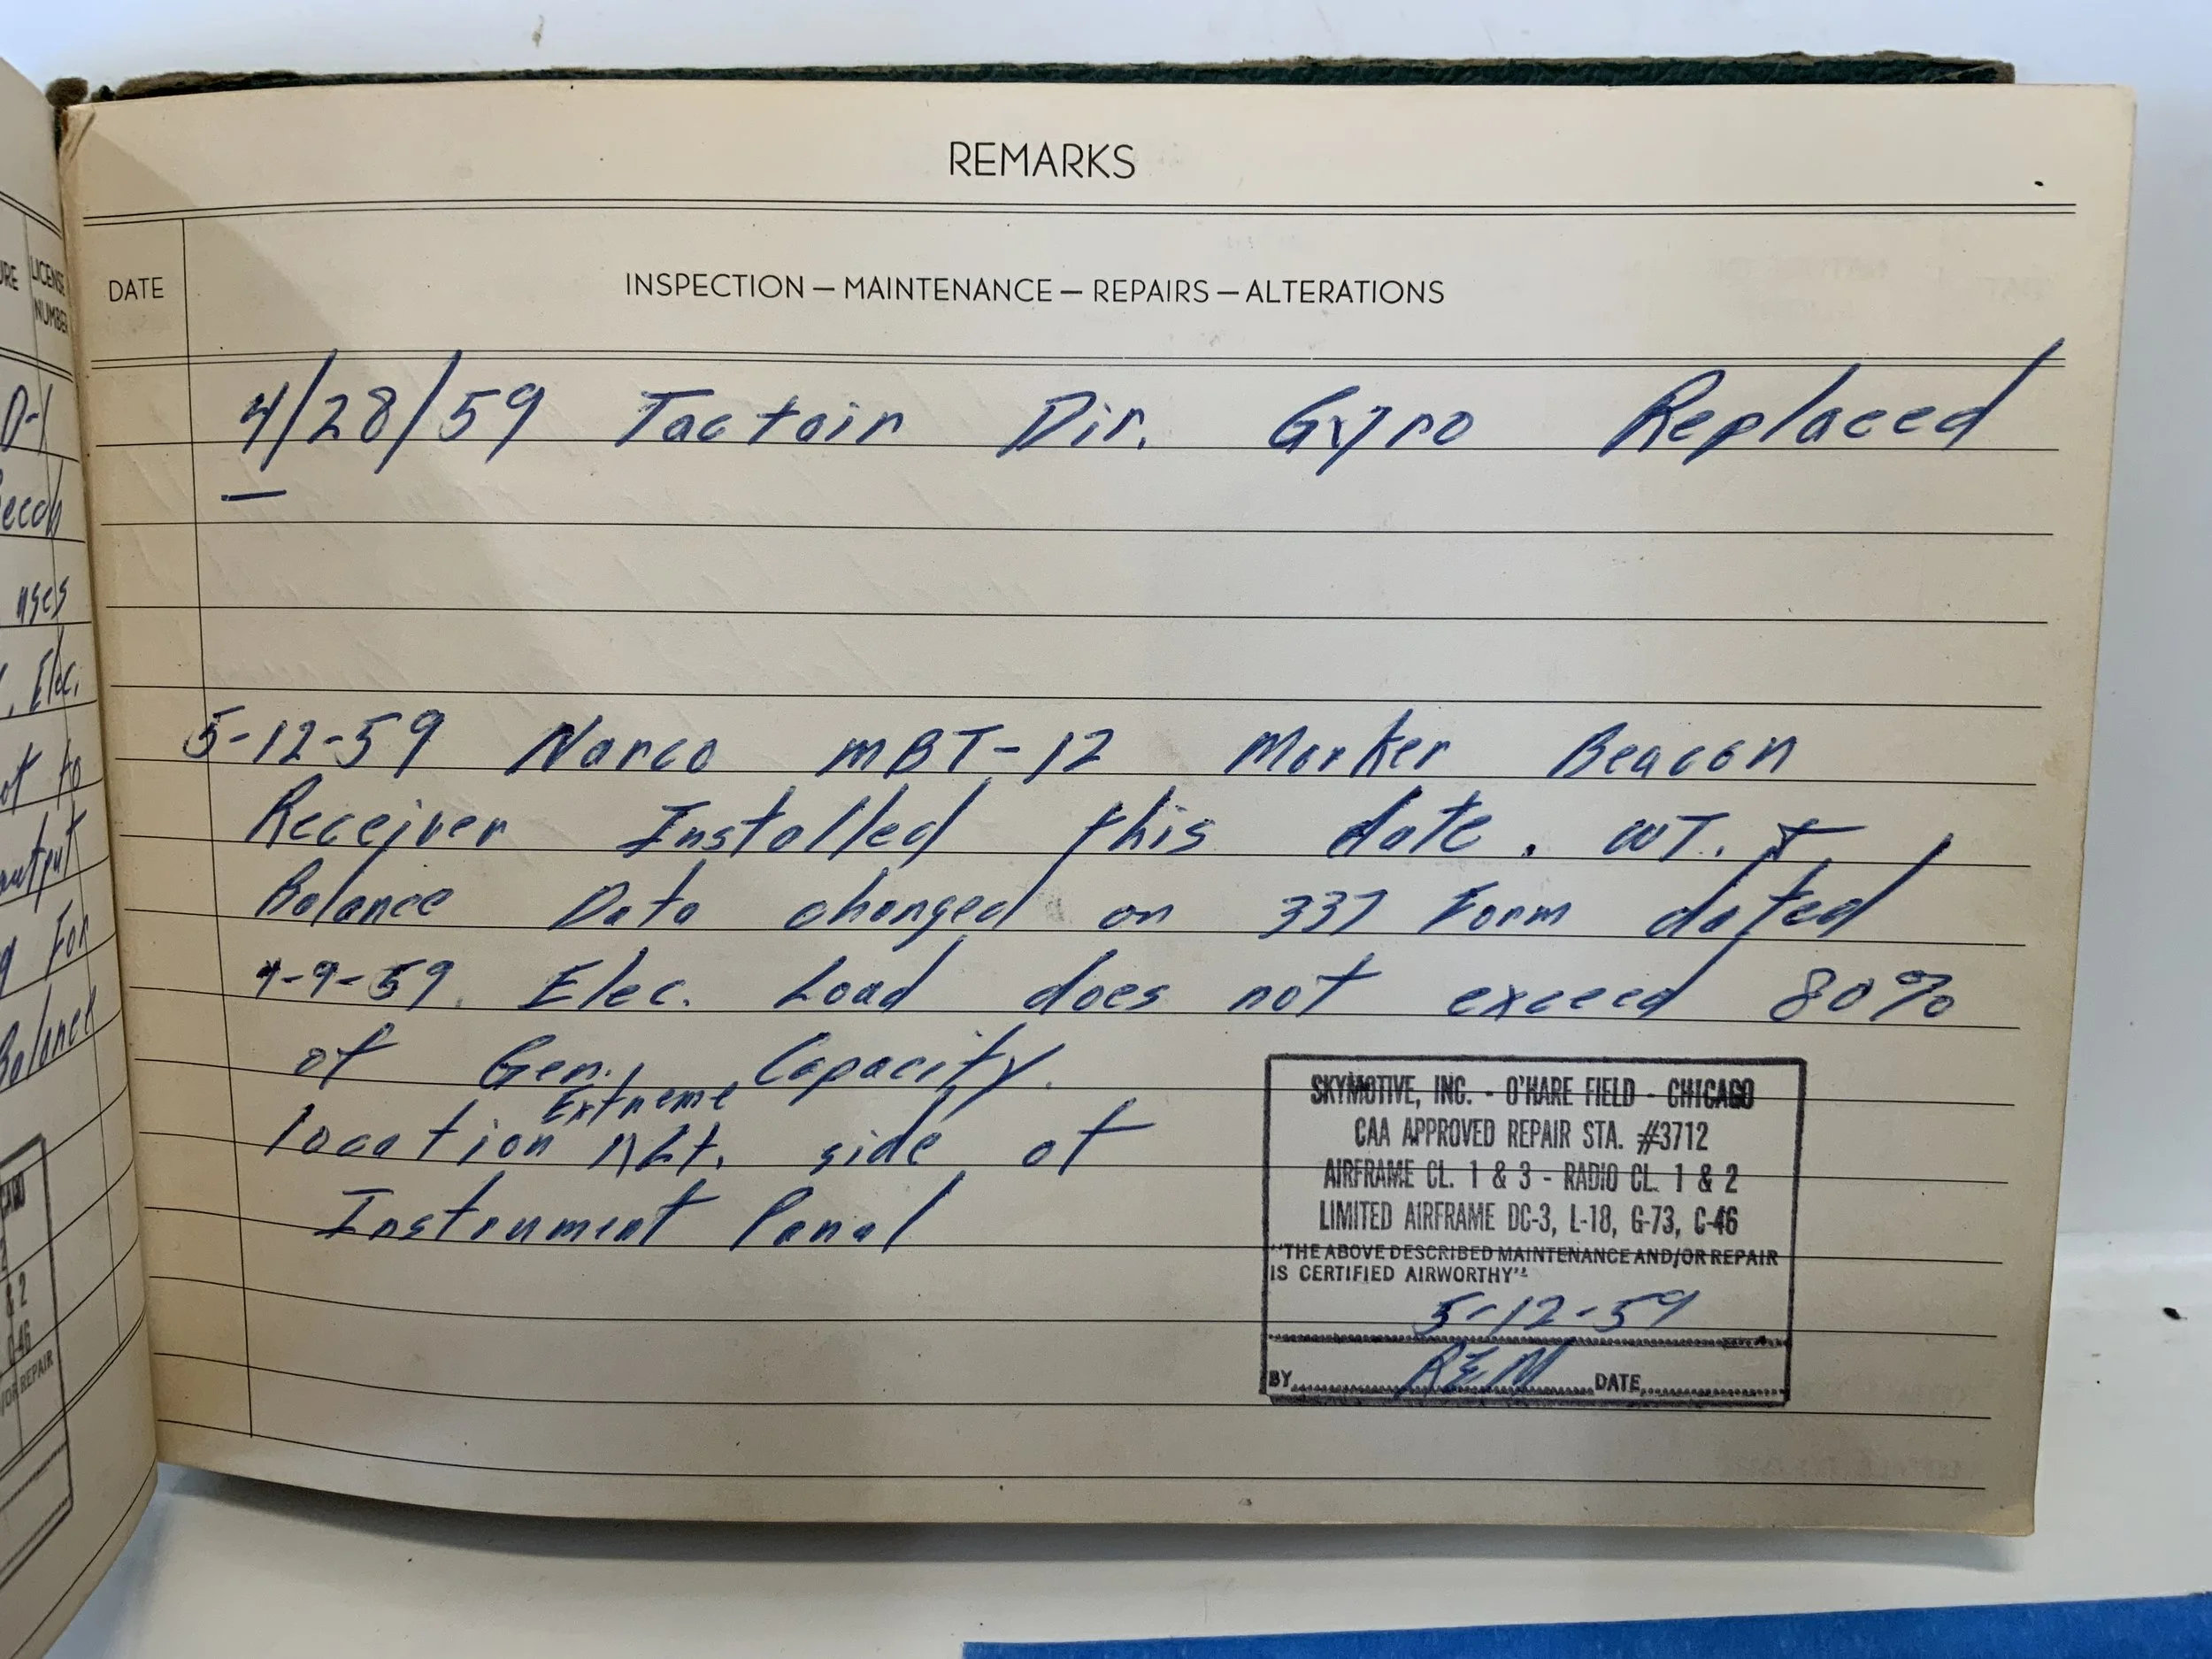 REMARKS
DATE
INSPECTION — MAINTENANCE — REPAIRS — ALTERATIONS
4/28/59 Tactair Dir. Gyro Replaced
5-12-59 Narco MBT-12 Marker Beacon
Receiver Installed this date. WT. &
Balance Data changed on 337 Form dated
4-9-59. Elec. Load does not exceed 80%
of Gen. Capacity.
Extreme
location Lt. side of
Instrument Panal
SKYMOTIVE, INC. - O'HARE FIELD - CHICAGO
CAA APPROVED REPAIR STA. #3712
AIRFRAME CL. 1 & 3 - RADIO CL. 1 & 2
LIMITED AIRFRAME DC-3, L-18, G-73, C-46
"THE ABOVE DESCRIBED MAINTENANCE AND/OR REPAIR
IS CERTIFIED AIRWORTHY"
5-12-59
BY REM DATE
LICENSE
NUMBER
Elec.
to
output
For
Balance
& 2
C-46
REPAIR